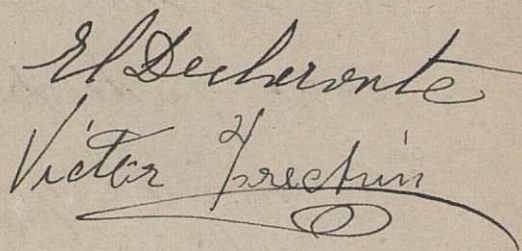 El Declarante
Victor Frechin